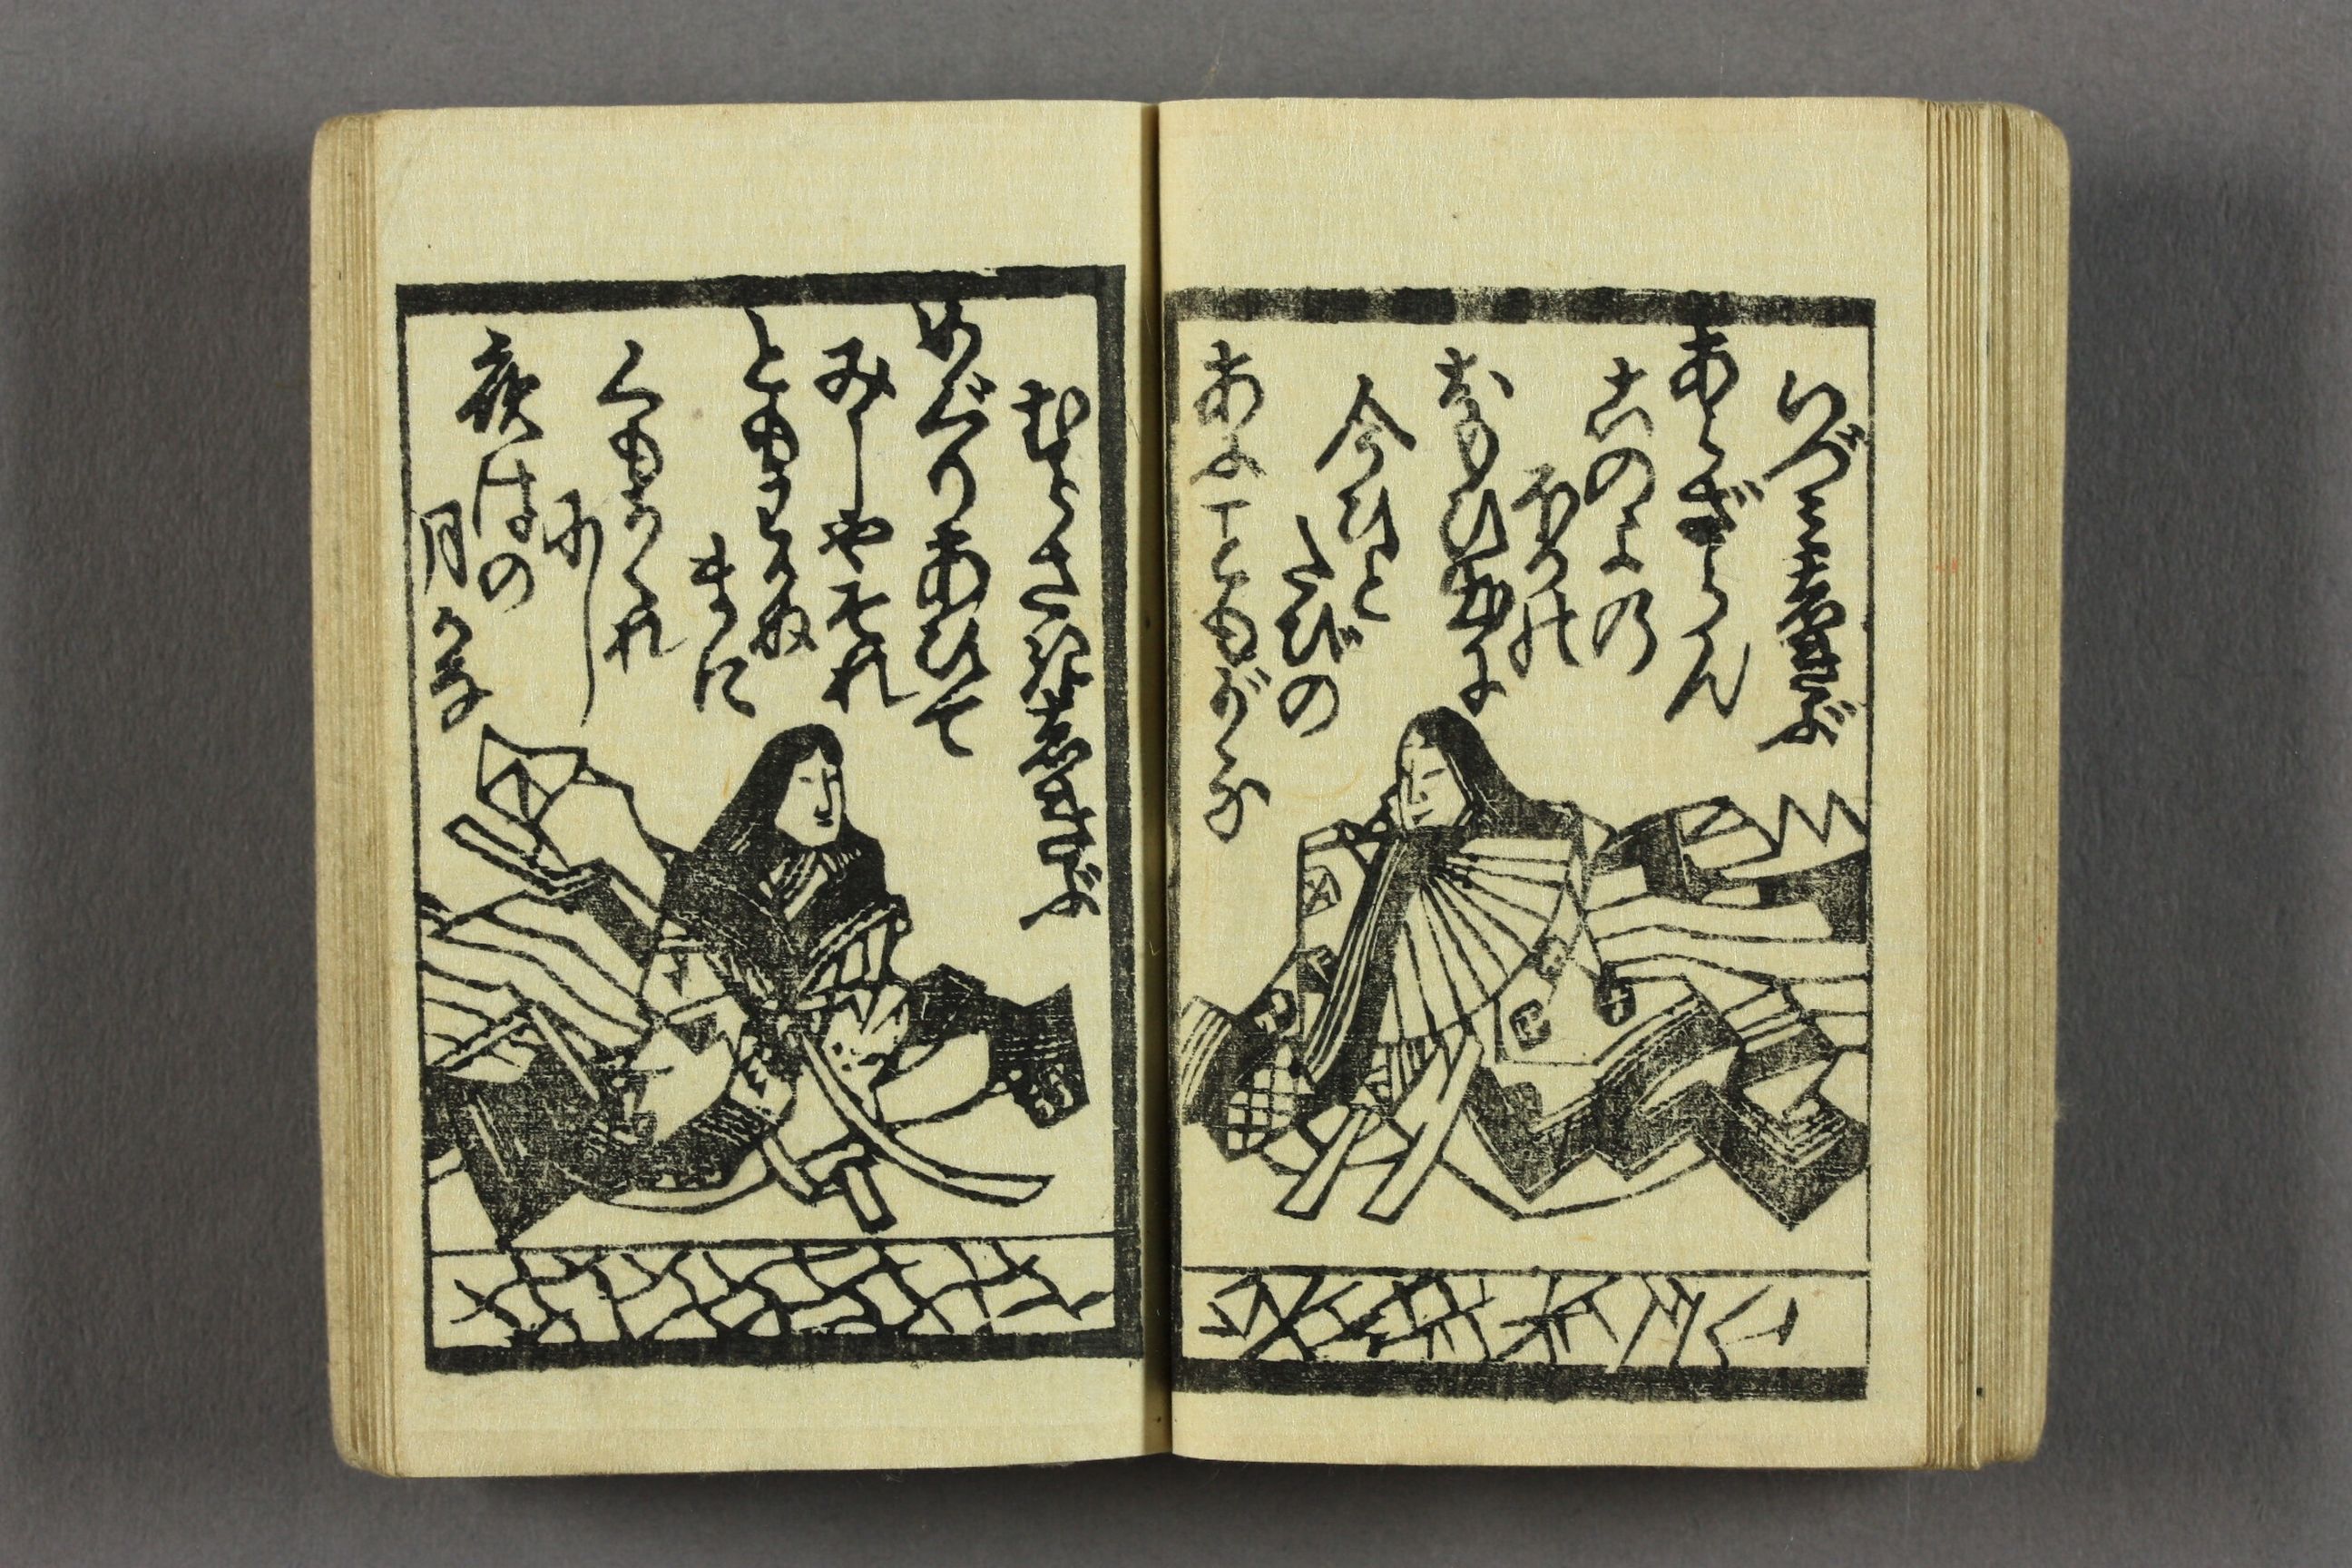 いづミ志きぶ
あらざらん
古のよの
ほかの
おもひ出に
今ひと
たびの
あふことも哉
むらさき志きぶ
めぐりあひて
みしやそれ
ともわかぬ
まに
くもがくれ
にし
夜はの
月かな